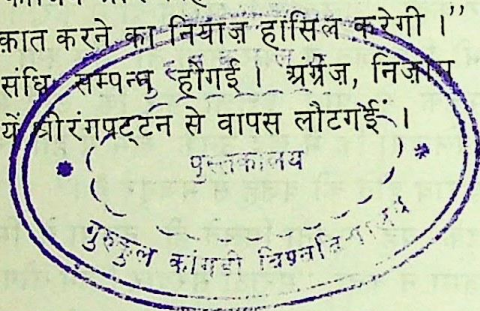 क़ात करने का नियाज़ हासिल करेगी ।”
संधि सम्पन्न होगई । अंग्रेज, निज़ाम
यें श्रीरंगपट्टन से वापस लौटगईं ।
पुस्तकालय
गुरुकुल कांगड़ी विश्वविद्यालय